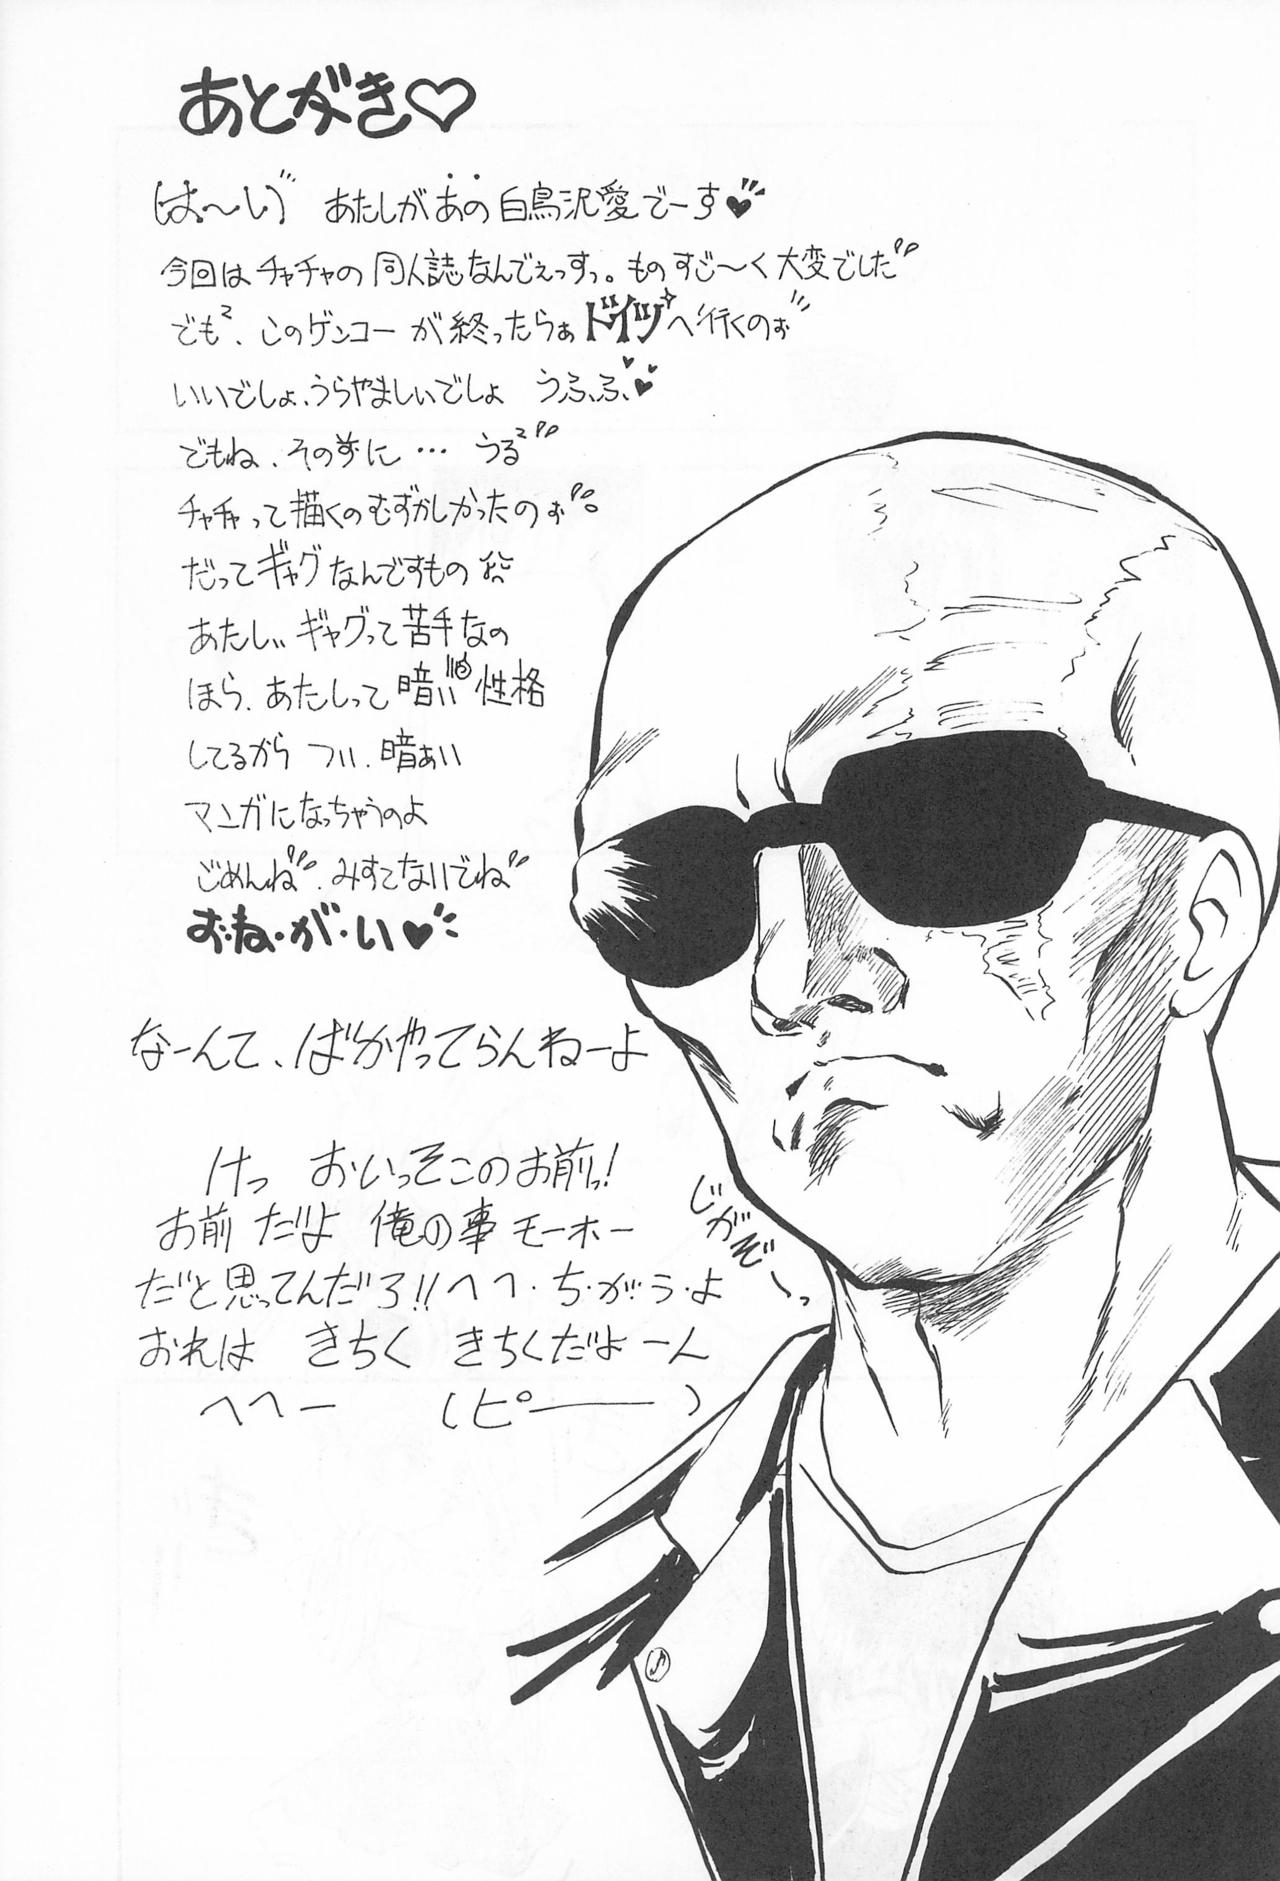 あとがき♡
はーい゛ あたしがあの白鳥沢愛でーす♥
今回はチャチャの同人誌なんでぇっすっ。ものすご〜く大変でした
でも²、このゲンコーが終ったらぁドイツへ行くのぉ
いいでしょ、うらやましいでしょ うふ、ふ、♥
でもね、その前に… うる²
チャチャって描くのむずかしかったのぉ。
だってギャグなんですもの
あたしぃギャグって苦手なの
ほら、あたしって暗い性格
してるから つい、暗ぁい
マンガになっちゃうのよ
ごめんね、みすてないでね
お・ね・が・い♥
なーんて、ばかやってらんねーよ
けっ おいっそこのお前っ!
お前だよ 俺の事モーホー
だと思ってんだろ!!へへ・ち・が・う・よ
おれは きちく きちくだよーん
へへー (ピー――)
じがぞーっ
S